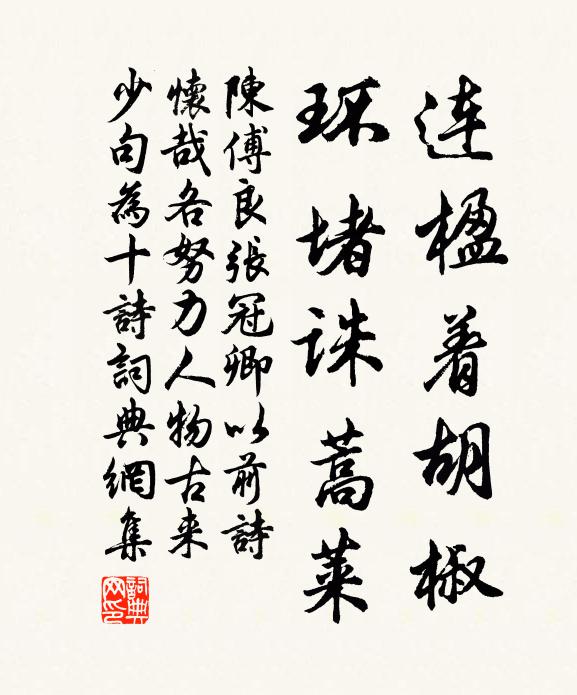 连楹着胡椒
环堵诛蒿莱
陳傅良張冠卿以前詩
懷哉各努力人物古来
少句為十詩詞典網集
詞典
网印